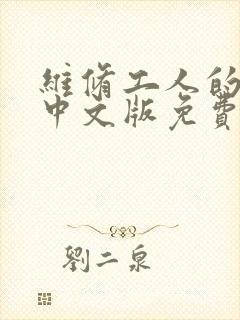 維脩工人的
中文版免費
劉二泉